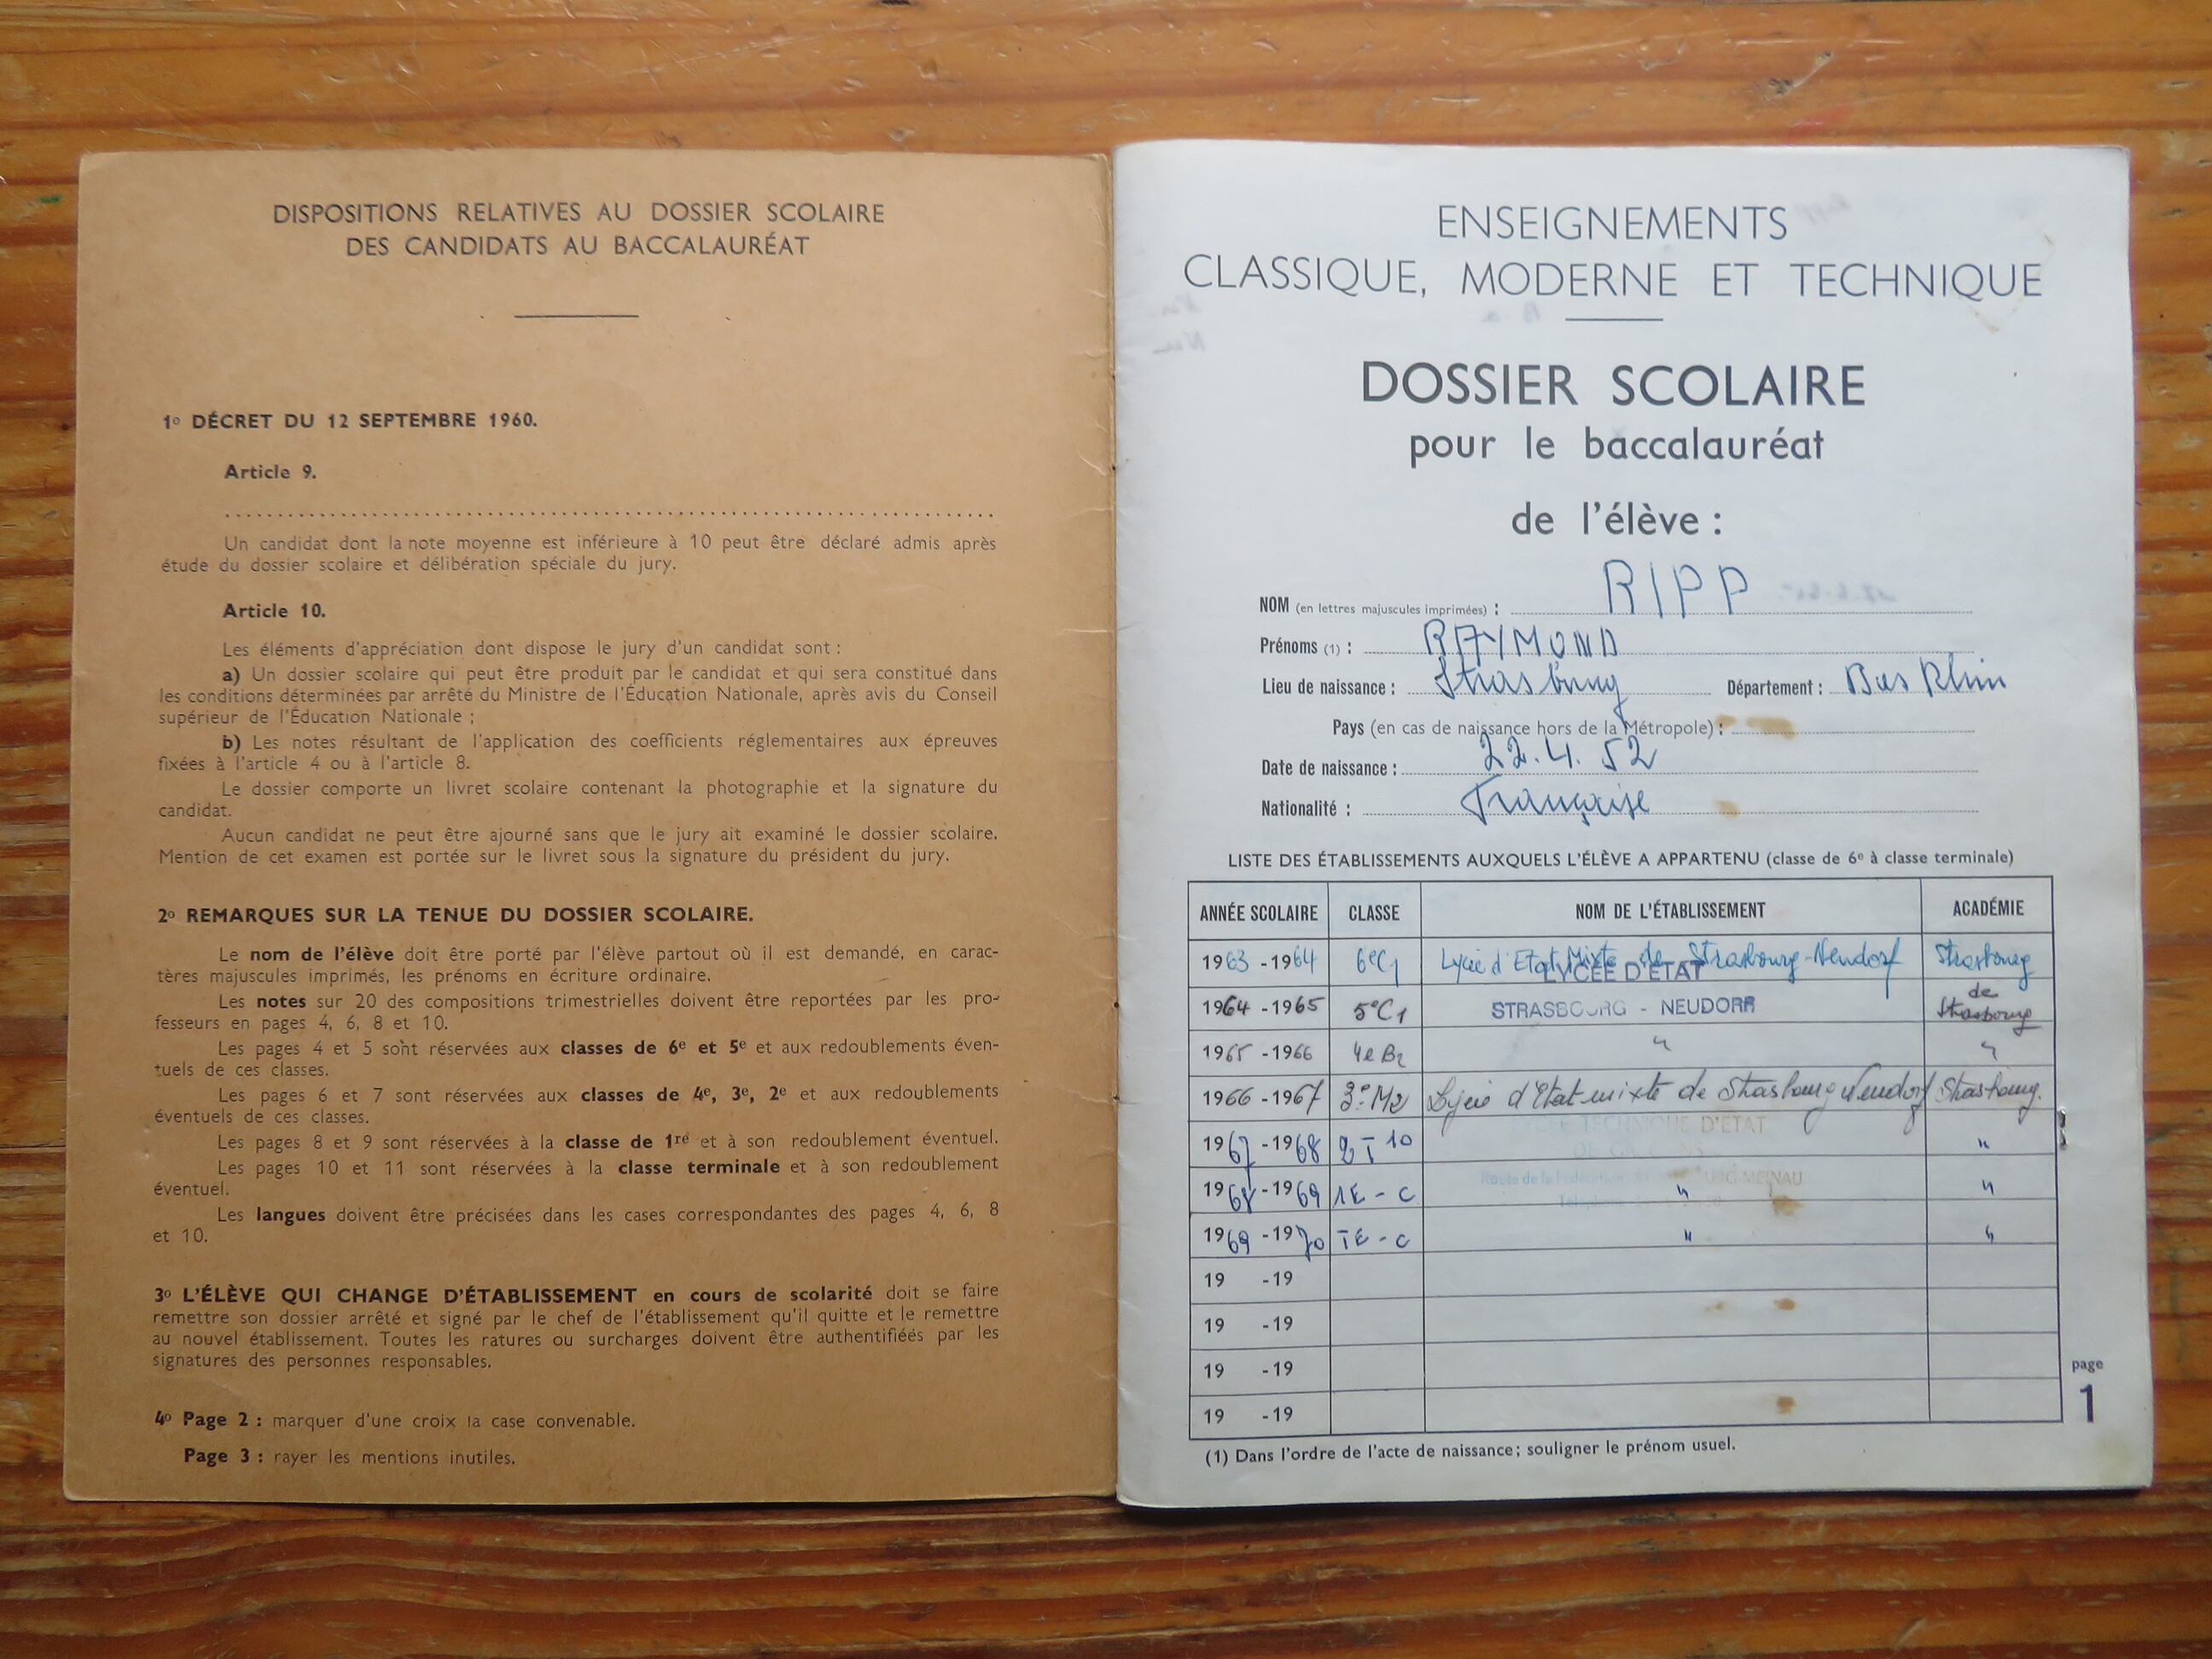 DISPOSITIONS RELATIVES AU DOSSIER SCOLAIRE
DES CANDIDATS AU BACCALAURÉAT
1º DÉCRET DU 12 SEPTEMBRE 1960.
Article 9.
Un candidat dont la note moyenne est inférieure à 10 peut être déclaré admis après
étude du dossier scolaire et délibération spéciale du jury.
Article 10.
Les éléments d'appréciation dont dispose le jury d'un candidat sont :
a) Un dossier scolaire qui peut être produit par le candidat et qui sera constitué dans
les conditions déterminées par arrêté du Ministre de l'Éducation Nationale, après avis du Conseil
supérieur de l'Éducation Nationale ;
b) Les notes résultant de l'application des coefficients réglementaires aux épreuves
fixées à l'article 4 ou à l'article 8.
Le dossier comporte un livret scolaire contenant la photographie et la signature du
candidat.
Aucun candidat ne peut être ajourné sans que le jury ait examiné le dossier scolaire.
Mention de cet examen est portée sur le livret sous la signature du président du jury.
2º REMARQUES SUR LA TENUE DU DOSSIER SCOLAIRE.
Le nom de l'élève doit être porté par l'élève partout où il est demandé, en carac-
tères majuscules imprimés, les prénoms en écriture ordinaire.
Les notes sur 20 des compositions trimestrielles doivent être reportées par les pro-
fesseurs en pages 4, 6, 8 et 10.
Les pages 4 et 5 sont réservées aux classes de 6e et 5e et aux redoublements éven-
tuels de ces classes.
Les pages 6 et 7 sont réservées aux classes de 4e, 3e, 2e et aux redoublements
éventuels de ces classes.
Les pages 8 et 9 sont réservées à la classe de 1re et à son redoublement éventuel.
Les pages 10 et 11 sont réservées à la classe terminale et à son redoublement
éventuel.
Les langues doivent être précisées dans les cases correspondantes des pages 4, 6, 8
et 10.
3º L'ÉLÈVE QUI CHANGE D'ÉTABLISSEMENT en cours de scolarité doit se faire
remettre son dossier arrêté et signé par le chef de l'établissement qu'il quitte et le remettre
au nouvel établissement. Toutes les ratures ou surcharges doivent être authentifiéés par les
signatures des personnes responsables.
4º Page 2 : marquer d'une croix la case convenable.
Page 3 : rayer les mentions inutiles.
ENSEIGNEMENTS
CLASSIQUE, MODERNE ET TECHNIQUE
DOSSIER SCOLAIRE
pour le baccalauréat
de l'élève :
NOM (en lettres majuscules imprimées) : RIPP
Prénoms (1) : RAYMOND
Lieu de naissance : Strasbourg Département : Bas Rhin
Pays (en cas de naissance hors de la Métropole) :
Date de naissance : 22.4.52
Nationalité : Française
LISTE DES ÉTABLISSEMENTS AUXQUELS L'ÉLÈVE A APPARTENU (classe de 6e à classe terminale)
ANNÉE SCOLAIRE CLASSE NOM DE L'ÉTABLISSEMENT ACADÉMIE
1963 - 1964 6eC1 Lycée d'Etat Mixte de Strasbourg-Neudorf Strasbourg
LYCÉE D'ÉTAT
1964 - 1965 5eC1 STRASBOURG - NEUDORF de Strasbourg
1965 - 1966 4e B2 " "
1966 - 1967 3e M2 Lycée d'Etat mixte de Strasbourg Neudorf Strasbourg.
LYCÉE TECHNIQUE D'ETAT
1967 - 1968 2 T 10 "
Route de la Fédération
MEINAU
1968 - 1969 1E - C " "
1969 - 1970 TE - C " "
19 - 19
19 - 19
19 - 19
19 - 19
(1) Dans l'ordre de l'acte de naissance; souligner le prénom usuel.
page
1